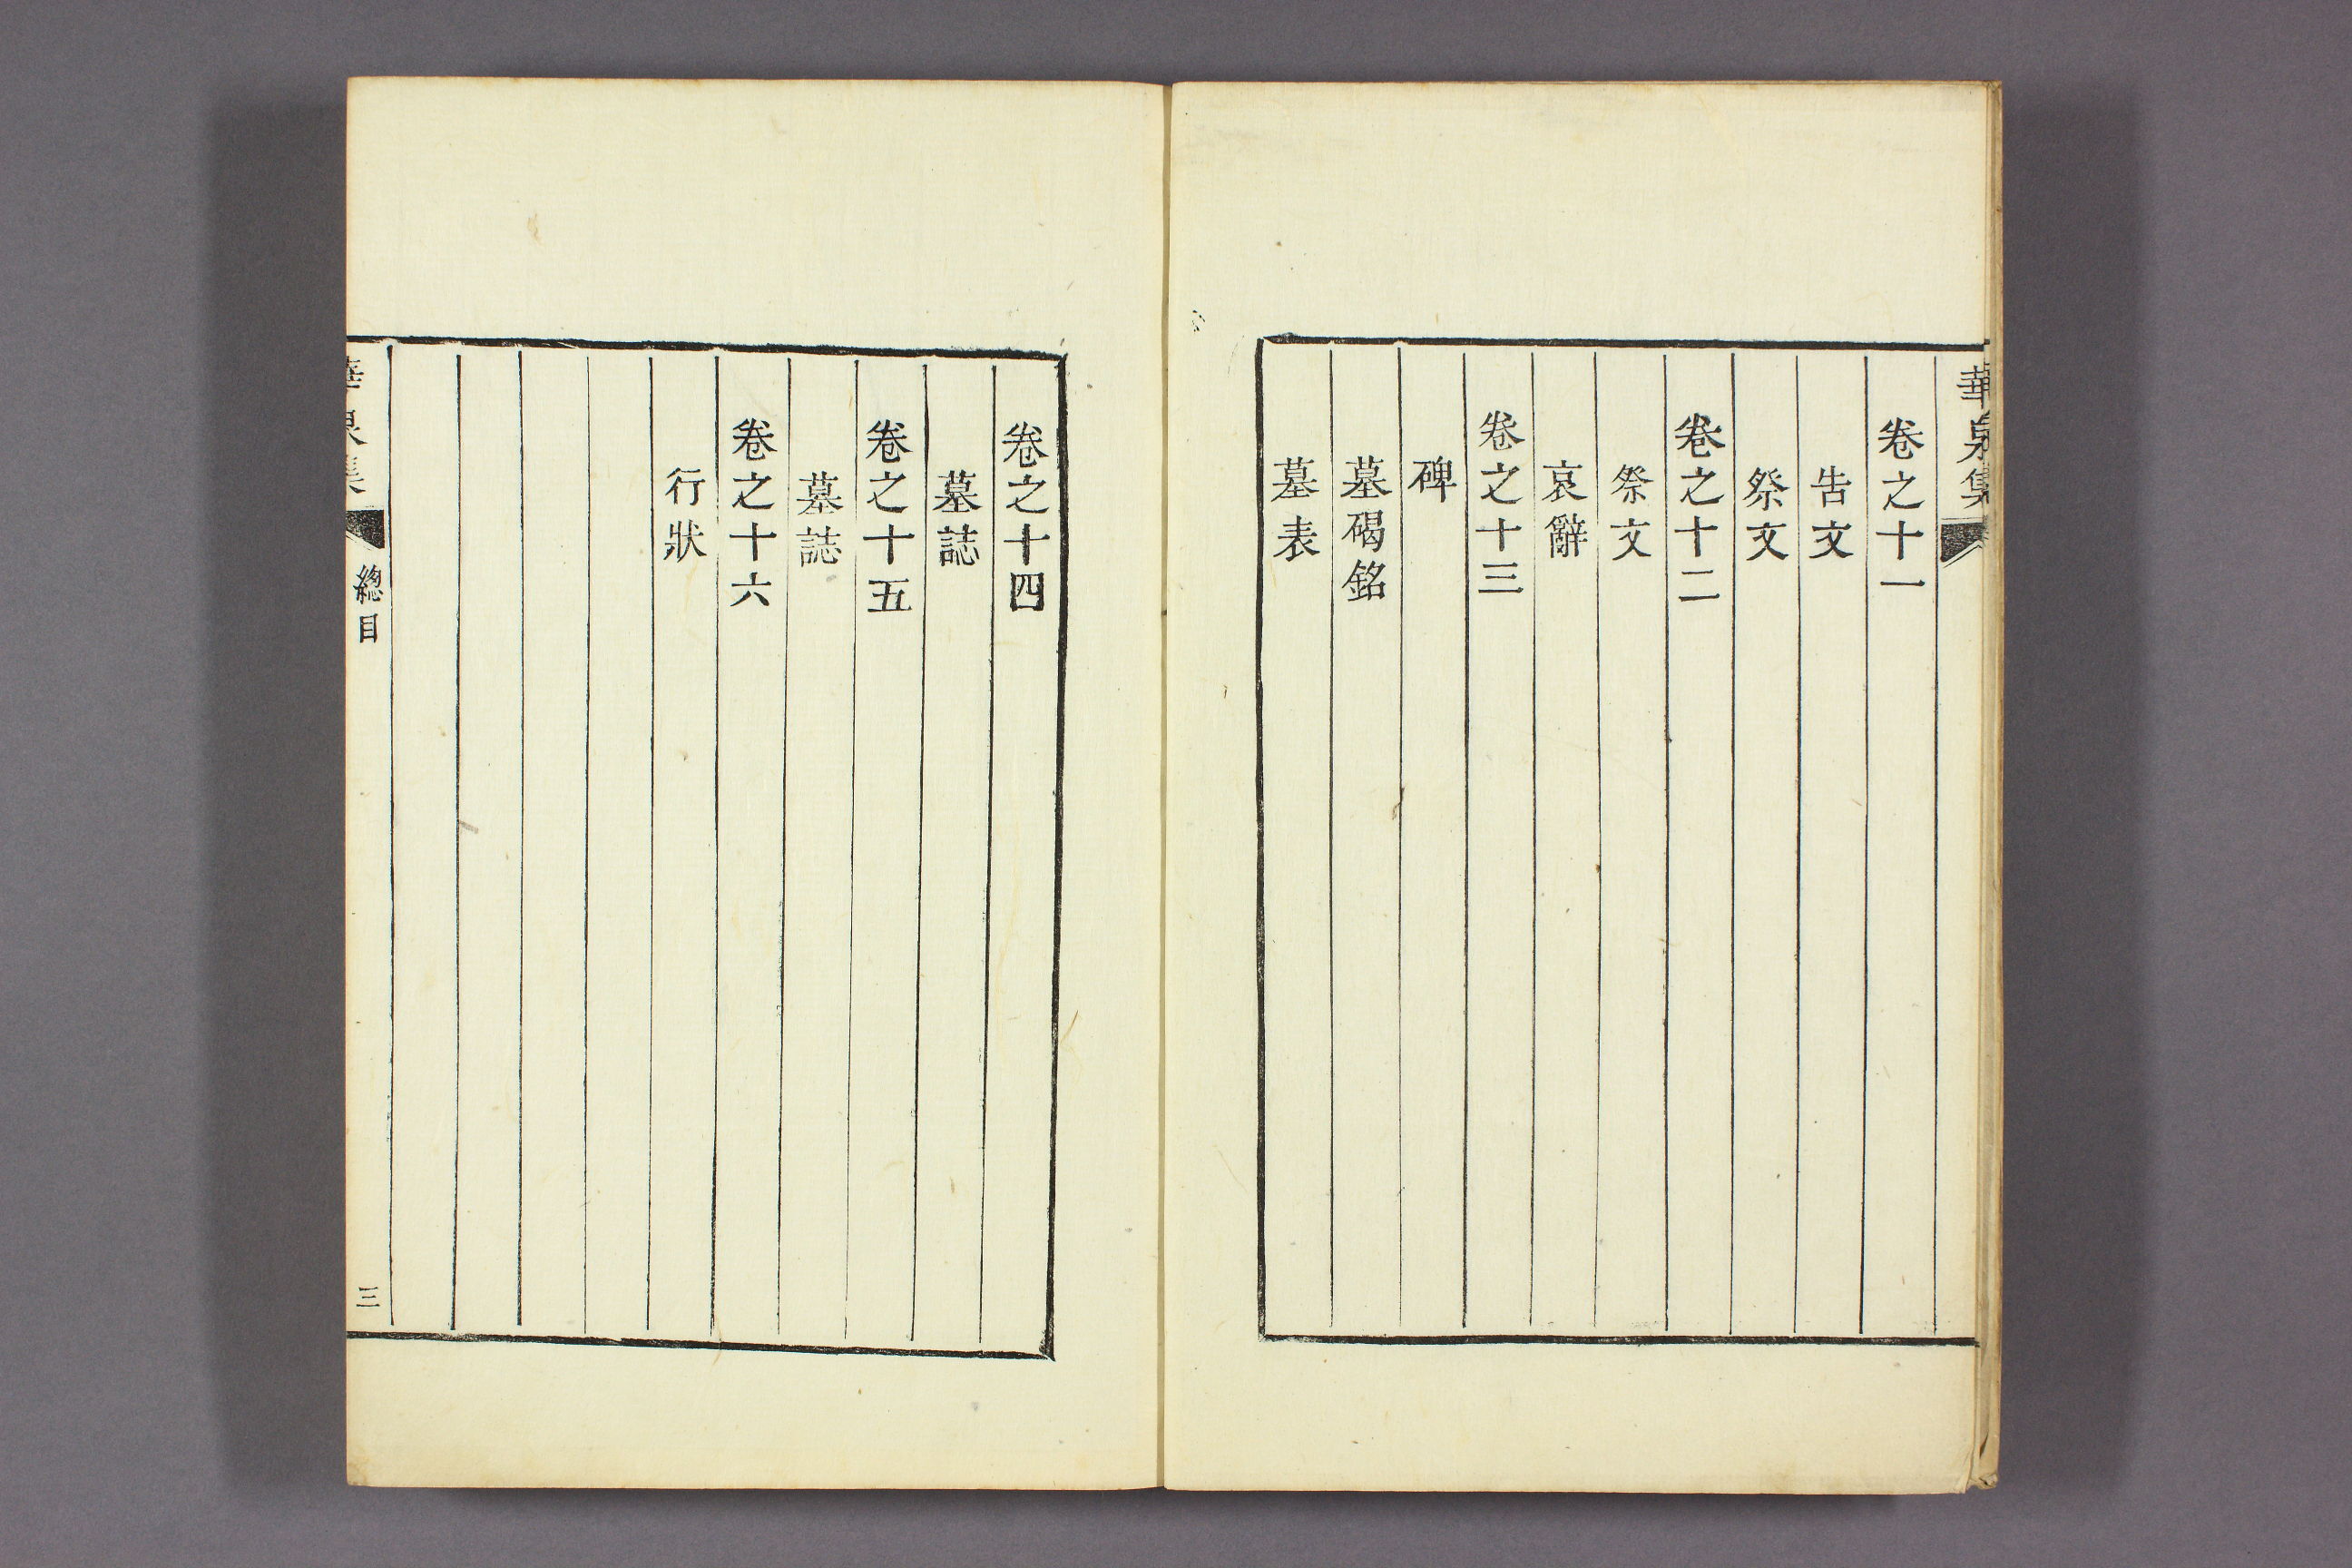 華泉集
卷之十一
告文
祭文
卷之十二
祭文
哀辭
卷之十三
碑
墓碣銘
墓表
卷之十四
墓誌
卷之十五
墓誌
卷之十六
行狀
華泉集
總目
三